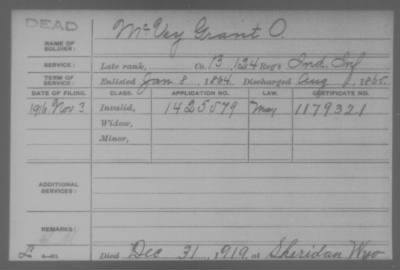 DEAD
NAME OF SOLDIER: McVey Grant O.
SERVICE: Late rank, Co. B, 124 Reg't Ind. Inf
TERM OF SERVICE: Enlisted Jan 8, 1864. Discharged Aug , 1865.
DATE OF FILING. CLASS. APPLICATION NO. LAW. CERTIFICATE NO.
1916 Nov 3 Invalid, 1425579 May 1179321
Widow,
Minor,
ADDITIONAL SERVICES:
REMARKS:
Died Dec 31, 1919, at Sheridan Wyo